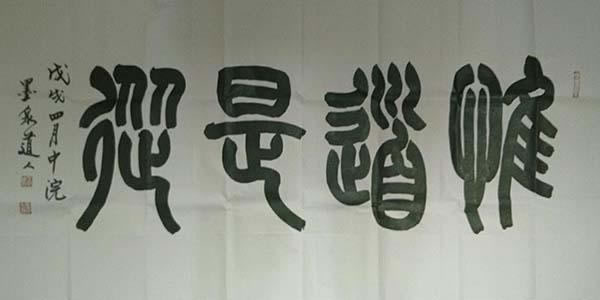 惟道是從
戊戌四月中浣
墨泉道人